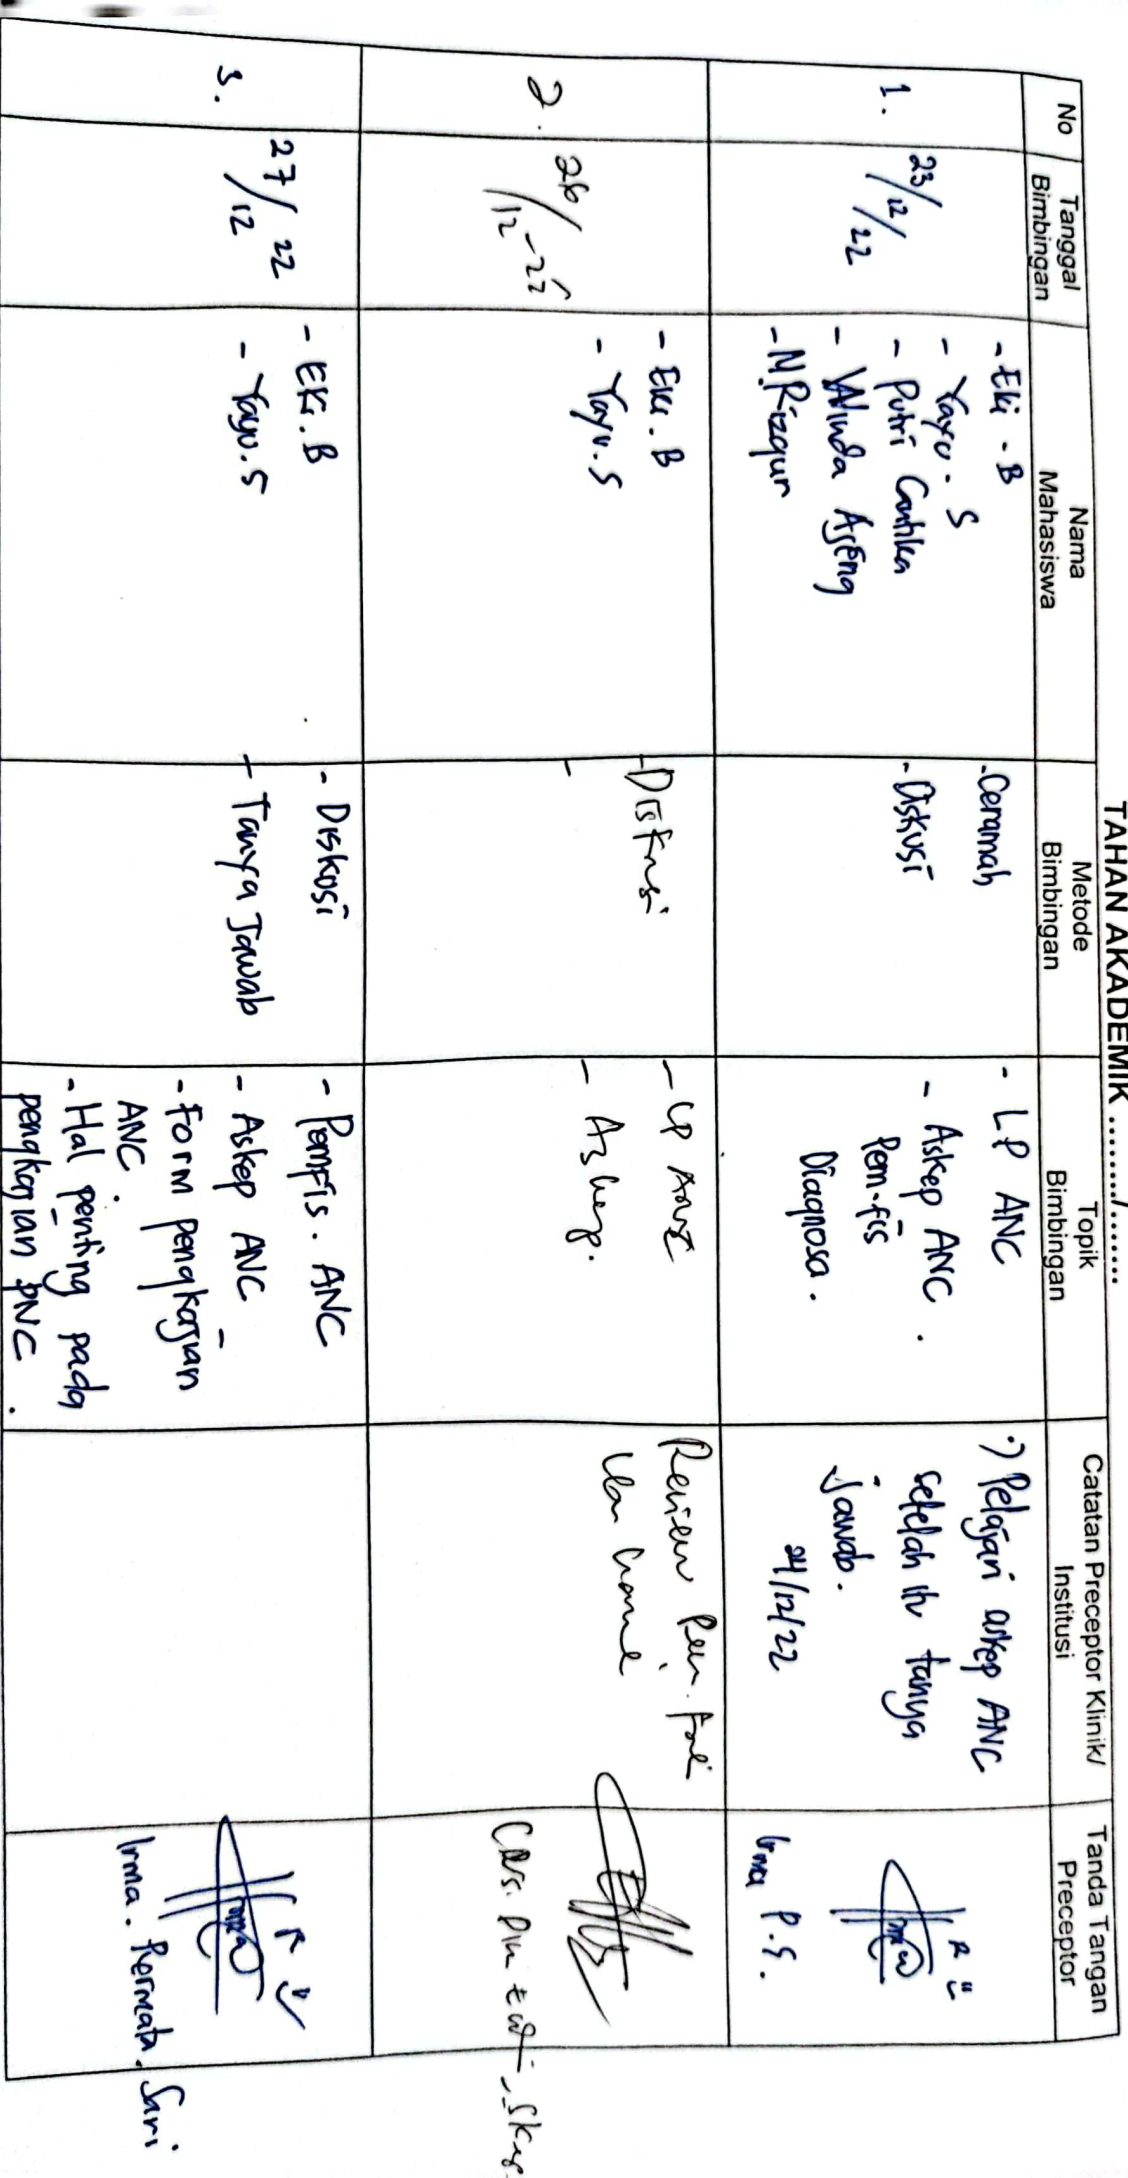 TAHAN AKADEMIK ........./........
No
Tanggal
Bimbingan
Nama
Mahasiswa
Metode
Bimbingan
Topik
Bimbingan
Catatan Preceptor Klinik/
Institusi
Tanda Tangan
Preceptor
1.
23/12/22
- Eki . B
- Yayu . S
- Putri Cantika
- Winda Ajeng
- M Rizqun
- Ceramah
- Diskusi
- LP ANC
- Askep ANC .
Pem.fis
Diagnosa .
Pelajari askep ANC
setelah itu tanya
jawab.
24/12/22
Irma P.S.
2.
26/12-22
- Eki . B
- Yayu . S
- Diskusi
-
- LP ANC
- Askep.
Review Pem. Fisik
3.
27/12 22
- Eki . B
- Yayu . S
- Diskusi
- Tanya Jawab
- Pemfis . ANC
- Askep ANC
- Form pengkajian
ANC .
- Hal penting pada
pengkajian PNC .
Irma . Permata . Sari